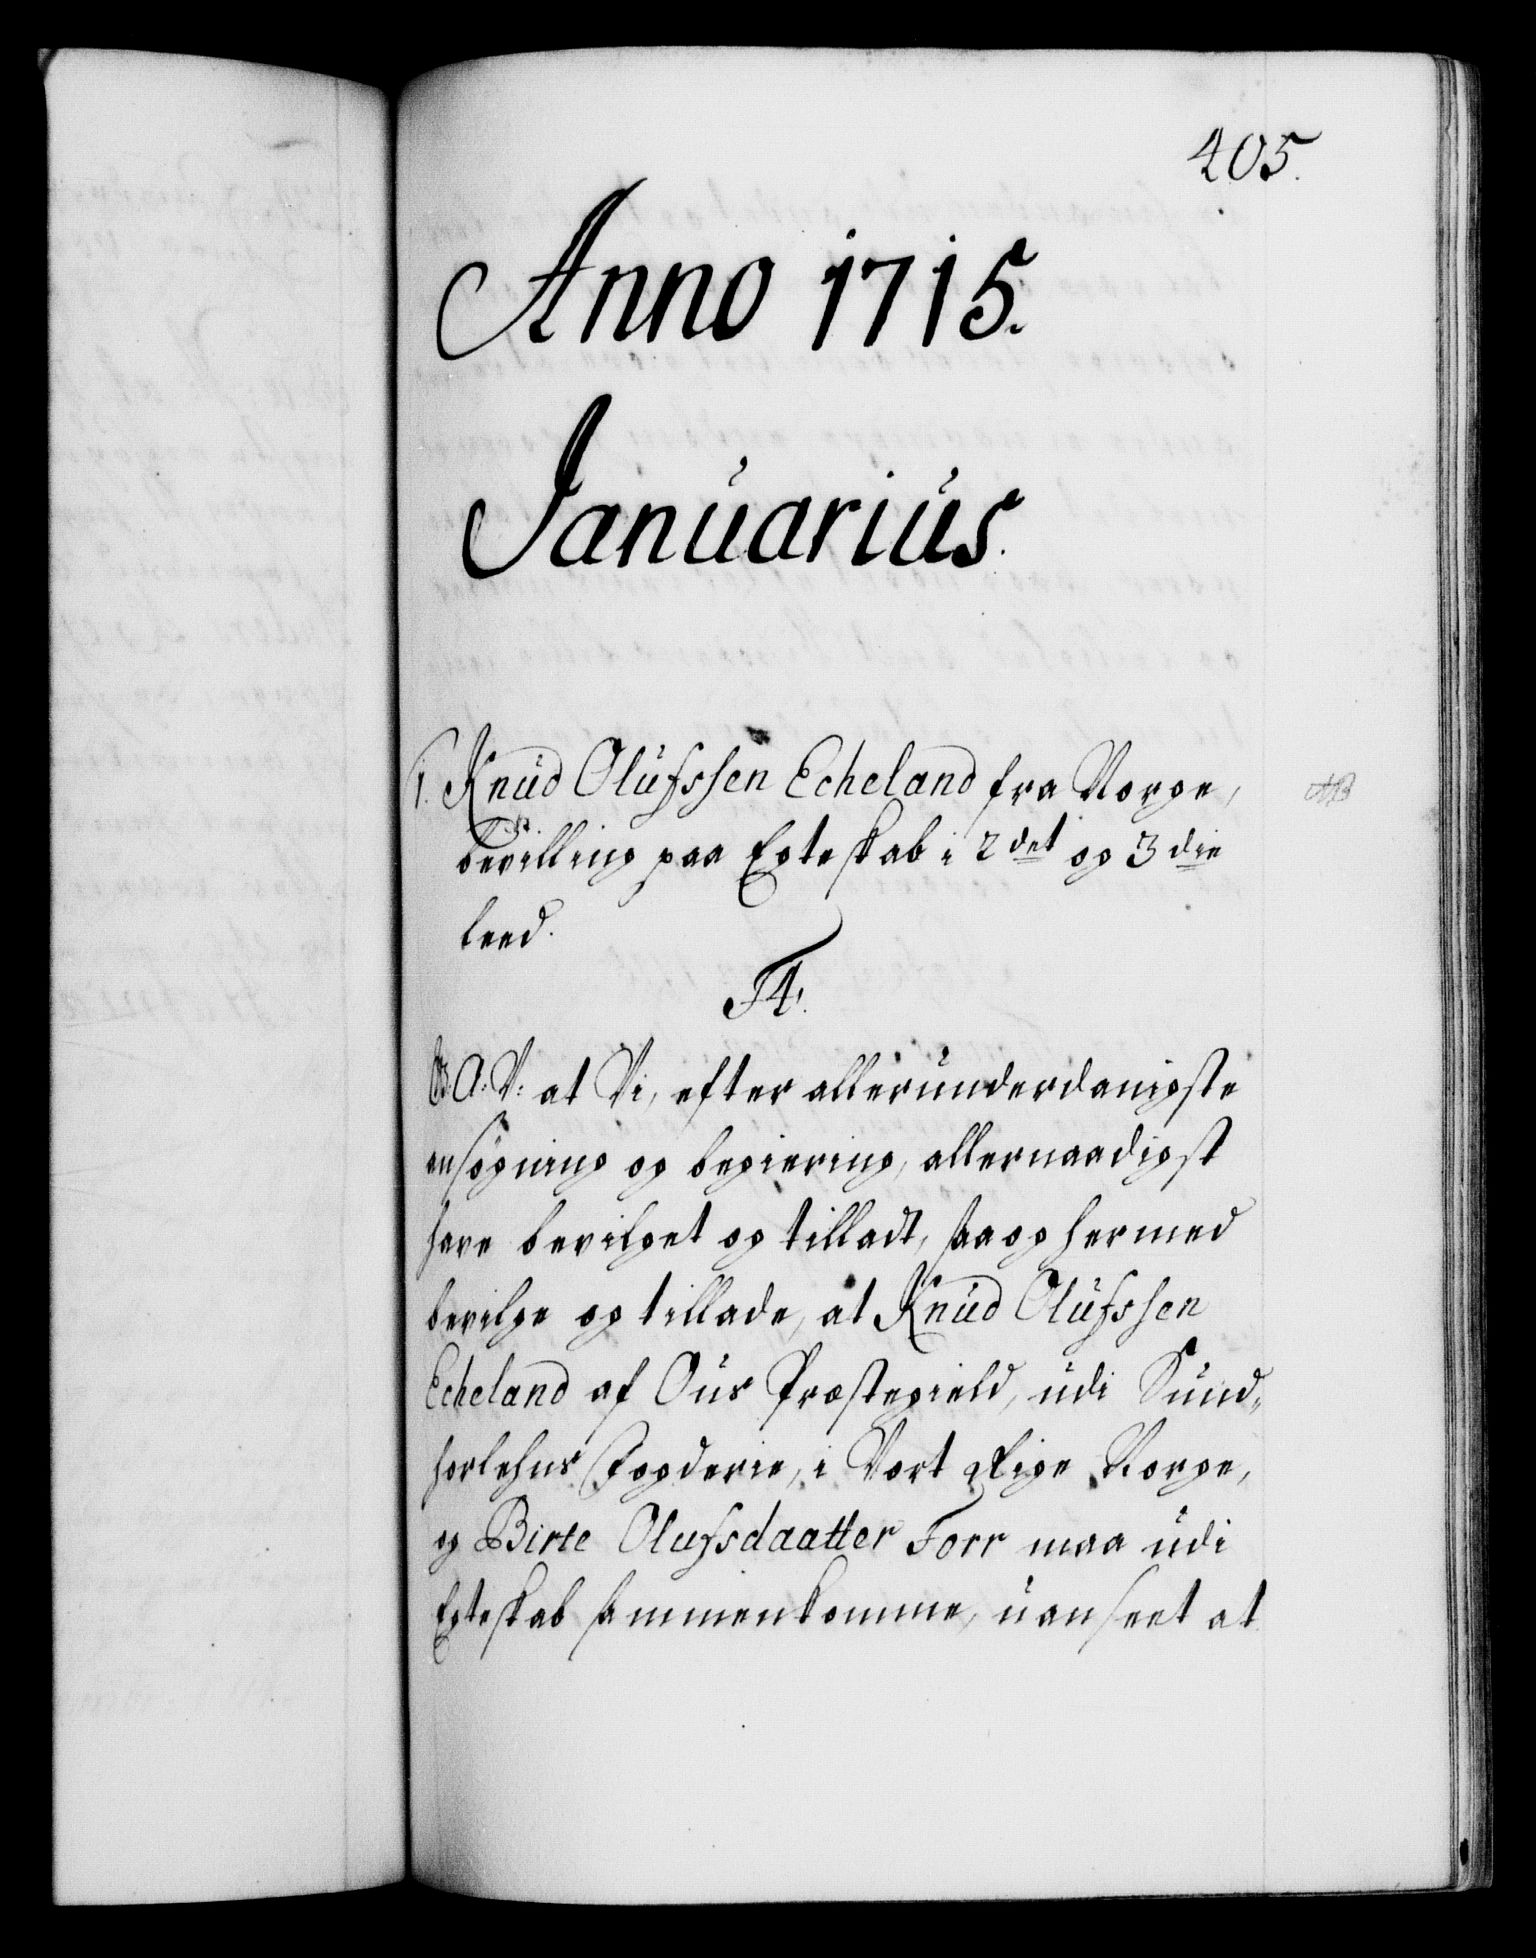 405.
Anno 1715.
Januarius.
1. Knud Olufssen Echeland fra Norge,
bevilling paa Egteskab i 2det og 3die
leed.
F4.
G. A: V: at Vi, efter allerunderdanigste
ansøgning og begiering, allernaadigst
have bevilget og tilladt, saa og hermed
bevilge og tillade, at Knud Olufssen
Echeland af Ous Præstegield, udi Sund„
horlehns Fogderie, i Vort Rige Norge,
og Birte Olufsdaatter Torr maa udi
Egteskab sammenkomme, uanseet at